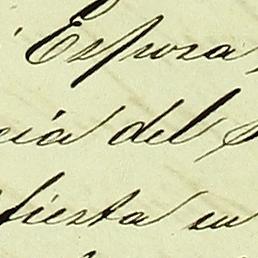 Esposa
cia del
fiesta en